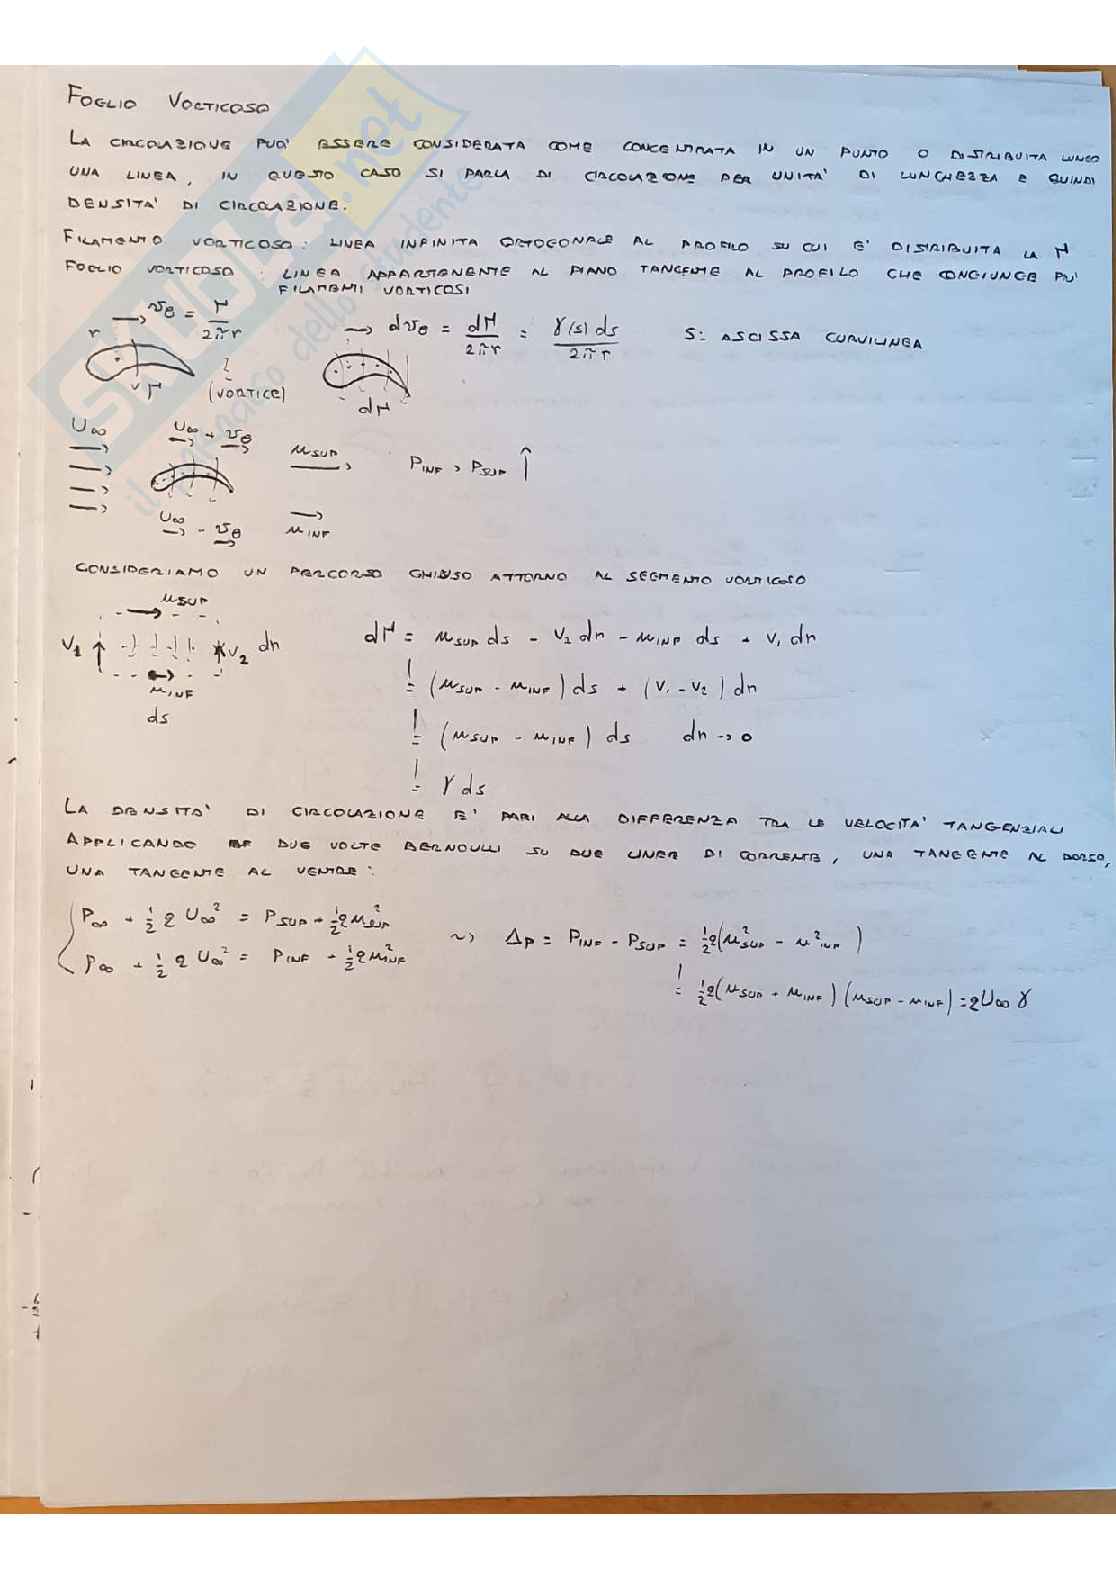 FOGLIO VORTICOSO
LA CIRCOLAZIONE PUO' ESSERE CONSIDERATA COME CONCENTRATA IN UN PUNTO O DISTRIBUITA LUNGO
UNA LINEA, IN QUESTO CASO SI PARLA DI CIRCOLAZIONE PER UNITA' DI LUNGHEZZA E QUINDI
DENSITA' DI CIRCOLAZIONE.
FILAMENTO VORTICOSO: LINEA INFINITA ORTOGONALE AL PROFILO SU CUI E' DISTRIBUITA LA Γ
FOGLIO VORTICOSO : LINEA APPARTENENTE AL PIANO TANGENTE AL PROFILO CHE CONGIUNGE PIU'
FILAMENTI VORTICOSI
r → vθ = Γ / 2πr
→ dvθ = dΓ / 2πr = γ(s) ds / 2πr
S: ASCISSA CURVILINEA
Γ (VORTICE) dΓ
U∞ U∞ + vθ uSUP PINF > PSUP ↑
U∞ - vθ uINF
CONSIDERIAMO UN PERCORSO CHIUSO ATTORNO AL SEGMENTO VORTICOSO
uSUP
V1 V2 dn
uINF
ds
dΓ = uSUP ds - V2 dn - uINF ds + V1 dn
= (uSUP - uINF) ds + (V1 - V2) dn
= (uSUP - uINF) ds dn → 0
= γ ds
LA DENSITA' DI CIRCOLAZIONE E' PARI ALLA DIFFERENZA TRA LE VELOCITA' TANGENZIALI
APPLICANDO DUE VOLTE BERNOULLI SU DUE LINEE DI CORRENTE, UNA TANGENTE AL DORSO,
UNA TANGENTE AL VENTRE:
P∞ + 1/2 ρ U∞² = PSUP + 1/2 ρ u²SUP
P∞ + 1/2 ρ U∞² = PINF + 1/2 ρ u²INF
~> Δp = PINF - PSUP = 1/2 ρ (u²SUP - u²INF)
= 1/2 ρ (uSUP + uINF) (uSUP - uINF) = ρ U∞ γ
SKUOLA.net
il paradiso dello studente